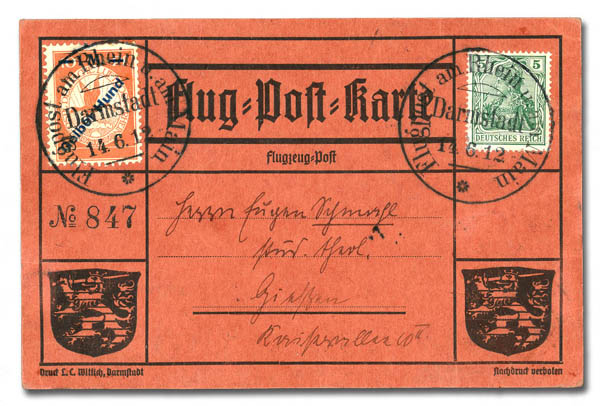 Flugpost am Rhein u. am Main
Darmstadt
14.6.12
Gelber Hund
Flug-Post-Karte
Flugzeug-Post
Flugpost am Rhein u. am Main
Darmstadt
14.6.12
5
DEUTSCHES REICH
№ 847
Herrn Eugen Schmahl
stud. theol.
Gießen
Kaiserallee
Druck L.C. Wittich, Darmstadt
Nachdruck verboten